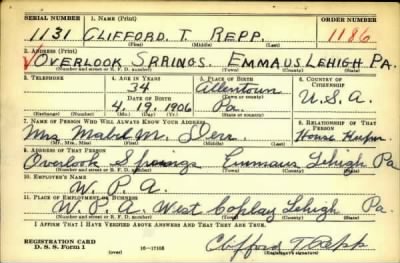 SERIAL NUMBER 1. NAME (Print) ORDER NUMBER
1131 CLIFFORD. T. REPP. 1186
(First) (Middle) (Last)
2. ADDRESS (Print)
OVERLOOK SPRINGS. EMMAUS. LEHIGH PA.
(Number and street or R. F. D. number) (Town) (County) (State)
3. TELEPHONE 4. AGE IN YEARS 5. PLACE OF BIRTH 6. COUNTRY OF CITIZENSHIP
34 Allentown
DATE OF BIRTH (Town or county)
4. 19. 1906 Pa. U.S.A.
(Exchange) (Number) (Mo.) (Day) (Yr.) (State or country)
7. NAME OF PERSON WHO WILL ALWAYS KNOW YOUR ADDRESS 8. RELATIONSHIP OF THAT PERSON
Mrs Mabel M. Derr House Keeper
(Mr., Mrs., Miss) (First) (Middle) (Last)
9. ADDRESS OF THAT PERSON
Overlook Springs Emmaus Lehigh Pa
(Number and street or R. F. D. number) (Town) (County) (State)
10. EMPLOYER'S NAME
W. P. A.
11. PLACE OF EMPLOYMENT OR BUSINESS
W. P. A. West Coplay Lehigh Pa.
(Number and street or R. F. D. number) (Town) (County) (State)
I AFFIRM THAT I HAVE VERIFIED ABOVE ANSWERS AND THAT THEY ARE TRUE.
REGISTRATION CARD
D. S. S. Form 1 (over) 16-17105 Clifford T Repp